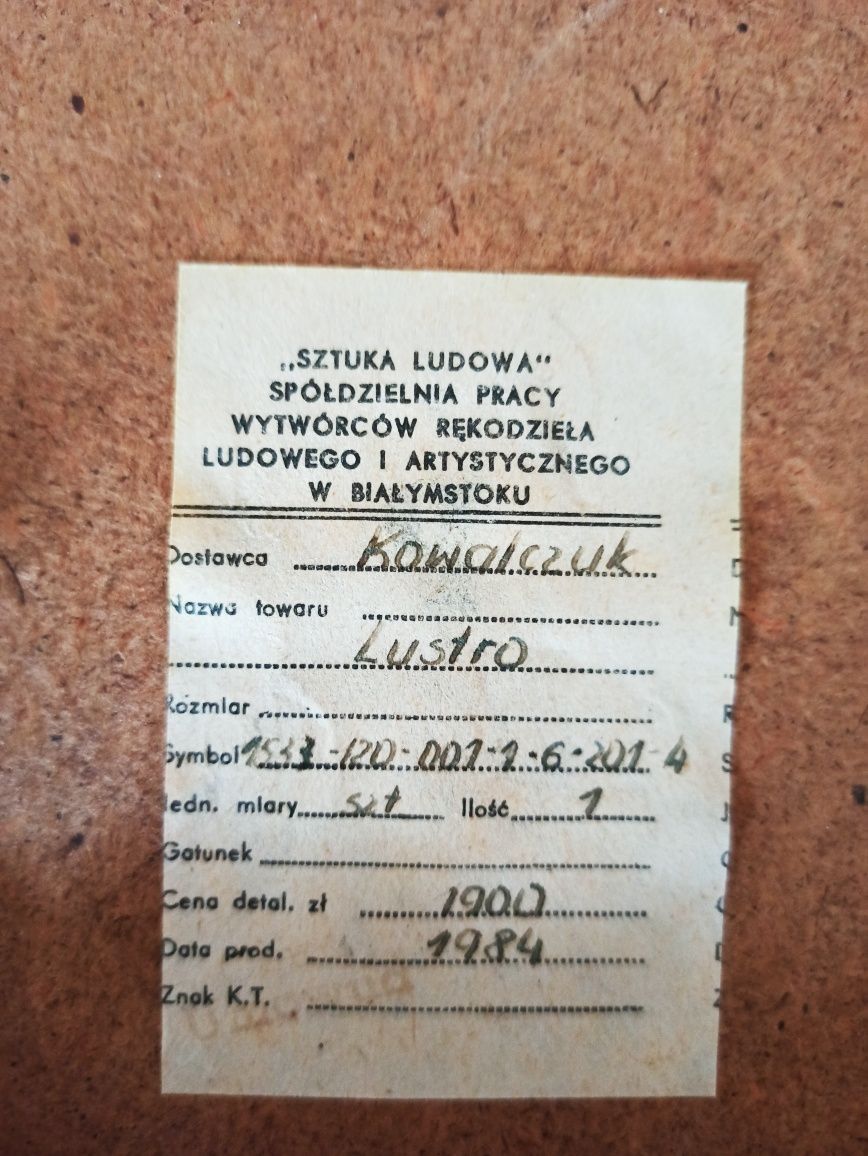 „SZTUKA LUDOWA"
SPÓŁDZIELNIA PRACY
WYTWÓRCÓW RĘKODZIEŁA
LUDOWEGO I ARTYSTYCZNEGO
W BIAŁYMSTOKU
Dostawca Kowalczuk
Nazwa towaru
Lustro
Rozmiar
Symbol -120-001-1-6-201-4
Jedn. miary szt Ilość 1
Gatunek
Cena detal. zł 1900
Data prod. 1984
Znak K.T.